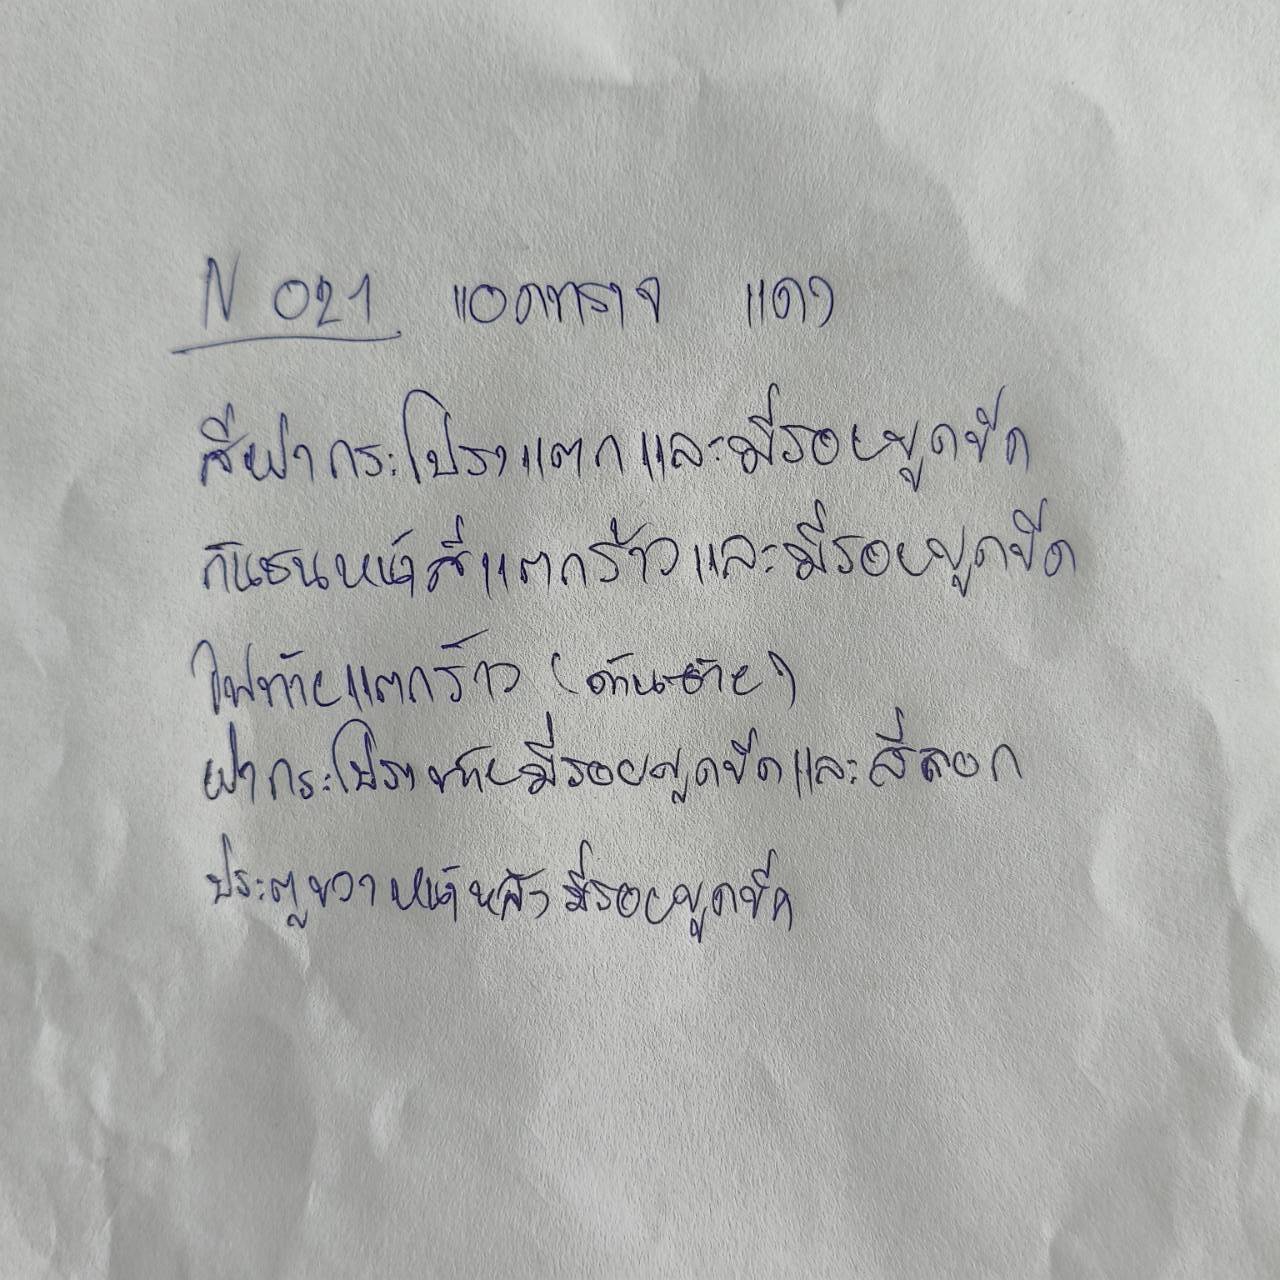 N 021 แอดทราจ แดง
สีฝากระโปรงแตกและมีรอยขูดขีด
กันชนหน้าสีแตกร้าวและมีรอยขูดขีด
ไฟท้ายแตกร้าว (ด้านซ้าย)
ฝากระโปรงท้ายมีรอยขูดขีดและสีลอก
ประตูขวาหน้าหลังมีรอยขูดขีด